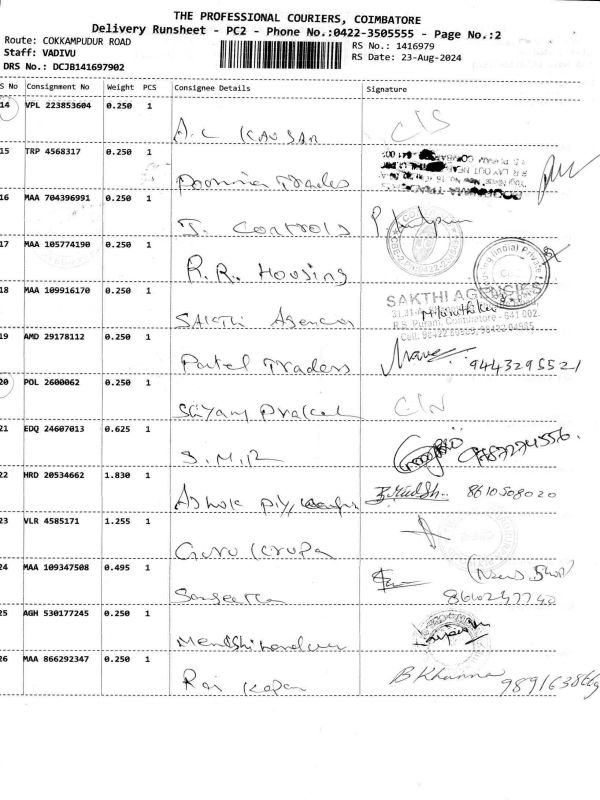 THE PROFESSIONAL COURIERS, COIMBATORE
Delivery Runsheet - PC2 - Phone No.:0422-3505555 - Page No.:2
Route: COKKAMPUDUR ROAD
RS No.: 1416979
Staff: VADIVU
RS Date: 23-Aug-2024
DRS No.: DCJB141697902
S No Consignment No Weight PCS Consignee Details Signature
14 VPL 223853604 0.250 1
A.C KAUSAR
15 TRP 4568317 0.250 1
Poornia Trades
16 MAA 704396991 0.250 1
J. Controls
17 MAA 105774190 0.250 1
R.R. Housing
18 MAA 109916170 0.250 1
SAKTHI AGENCIES
Sakthi Agencies
R.S. Puram, Coimbatore - 641 002.
19 AMD 29178112 0.250 1
Patel Traders 9443295521
20 POL 2600062 0.250 1
Shyam Prakash
21 EDQ 24607013 0.625 1
S.M.R
22 HRD 20534662 1.830 1
Ashok 8610508020
23 VLR 4585171 1.255 1
Guru Krupa
24 MAA 109347508 0.495 1
Sangeetha
25 AGH 530177245 0.250 1
26 MAA 866292347 0.250 1
Raj Kapar B Khanna